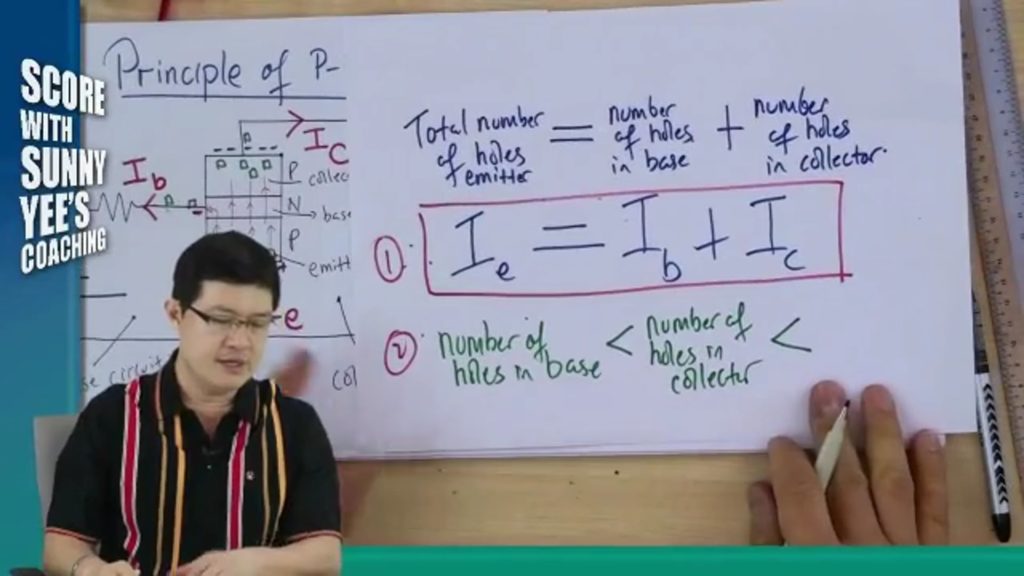 SCORE
WITH
SUNNY
YEE'S
COACHING
Principle of P-
Ic
Ib
P
N
P
base
e
Total number
of holes
emitter
=
number
of holes
in base
+
number
of holes
in collector.
① Ie = Ib + Ic
② number of
holes in base
<
number of
holes in
collector
<